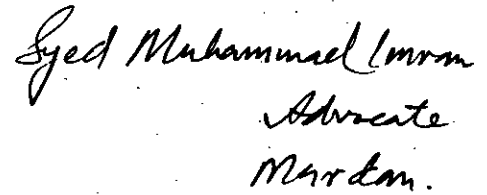 Syed Muhammad Imran
Advocate
Mardan.